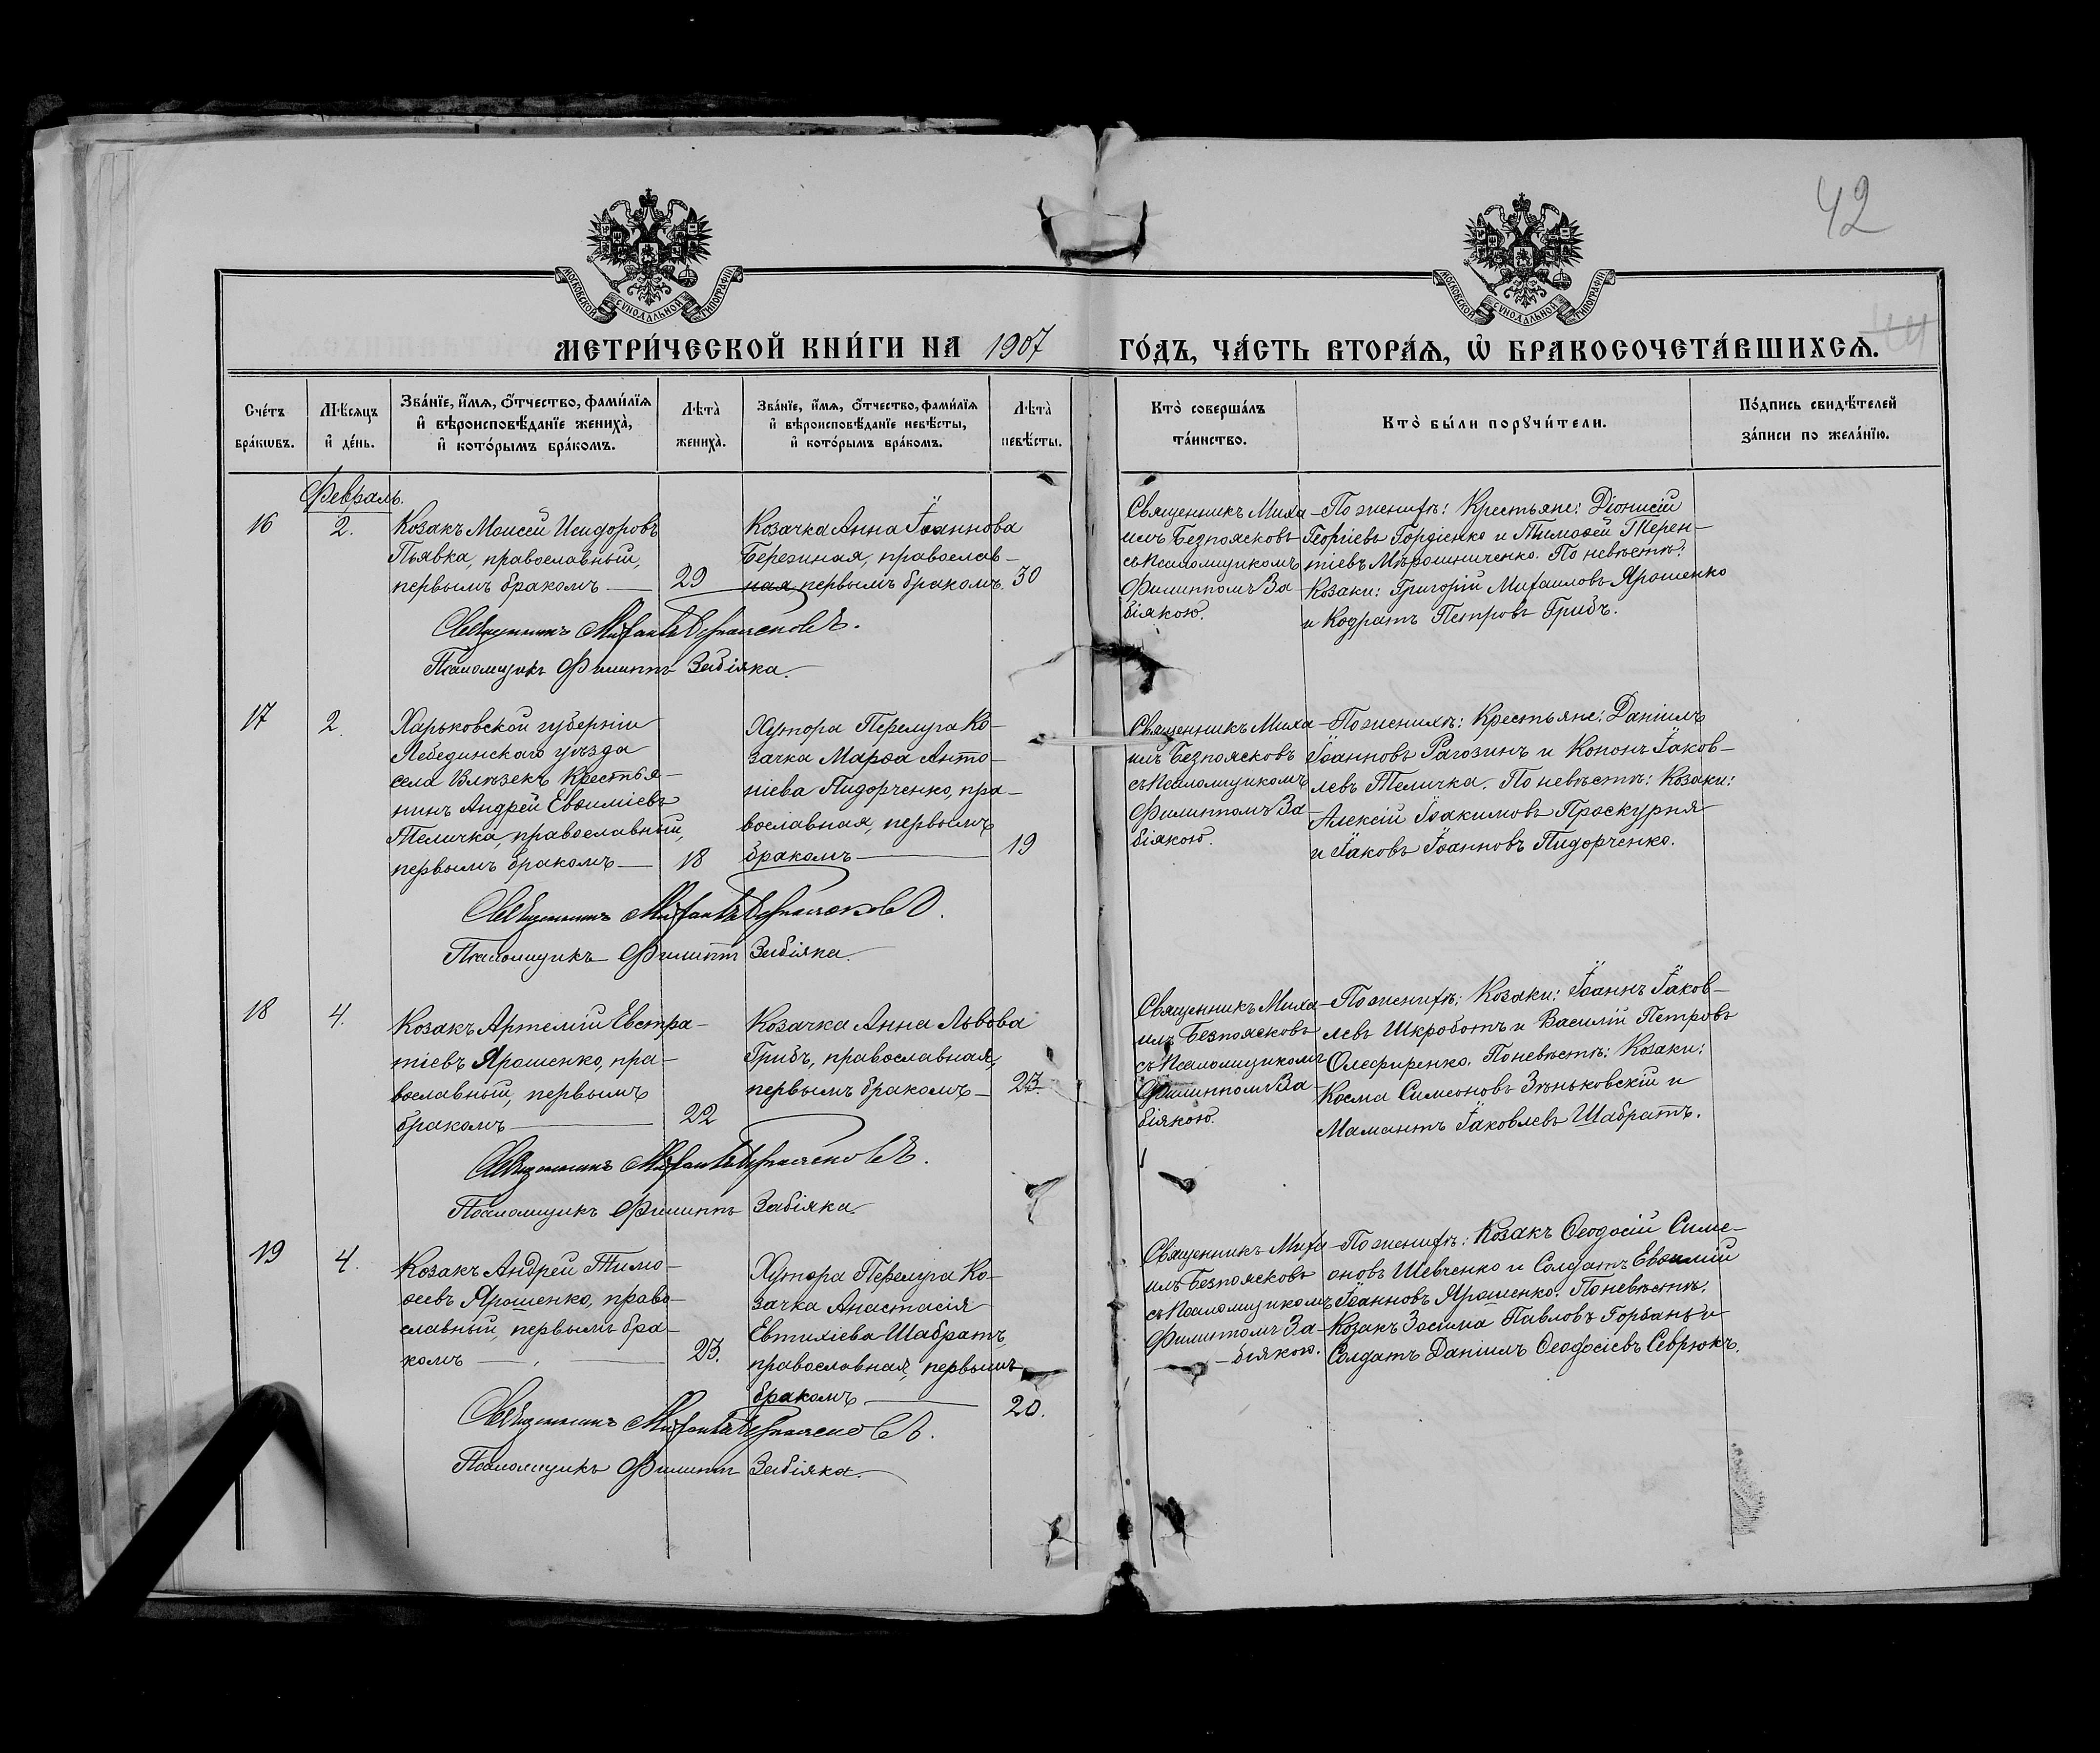 42
МОСКОВСКОЙ СУНОДАЛЬНОЙ ТИПОГРАФІИ
МОСКОВСКОЙ СУНОДАЛЬНОЙ ТИПОГРАФІИ
МЕТРИ́ЧЕСКОЙ КНИ́ГИ НА 1907 ГО́ДЪ, ЧА́СТЬ ВТОРА́Я, Ѡ БРАКОСОЧЕТА́ВШИХСЯ.
Сче́тъ
бра́кѡвъ.
Мѣ́сяцъ
и҆ де́нь.
Зва́нїе, и҆́мя, о҆́тчество, фами́лїя
и҆ вѣроисповѣ́данїе жениха̀,
и҆ кото́рымъ бра́комъ.
Лѣта̀
жениха̀.
Зва́нїе, и҆́мя, о҆́тчество, фами́лїя
и҆ вѣроисповѣ́данїе невѣ́сты,
и҆ кото́рымъ бра́комъ.
Лѣта̀
невѣ́сты.
Кто̀ соверша́лъ
та́инство.
Кто̀ бы́ли порꙋчи́тели.
По́дпись свидѣ́телей
за́писи по жела́нїю.
Февраль.
16
2.
Козакъ Моисей Исидоровъ
Пьявка, православный,
первымъ бракомъ
29
Козачка Анна Іоаннова
Березиная, православ-
ная, первымъ бракомъ.
30
Священникъ Миха-
илъ Безпоясковъ
съ Псаломщикомъ
Филиппомъ За-
біякою.
По женихѣ: Крестьяне: Діонисій
Георгіевъ Гордіенко и Тимоѳей Терен-
тіевъ Мѣрошниченко. По невѣстѣ:
Козаки: Григорій Михаиловъ Ярошенко
и Кодратъ Петровъ Грибъ.
Священникъ Михаилъ Безпоясковъ.
Псаломщикъ Филиппъ Забіяка.
17
2.
Харьковской губерніи
Лебединскаго уѣзда
села Влѣзекъ Крестья-
нинъ Андрей Евѳиміевъ
Теличка, православный,
первымъ бракомъ
18
Хутора Перелуга Ко-
зачка Марѳа Анто-
ніева Пидорченко, пра-
вославная, первымъ
бракомъ
19
Священникъ Миха-
илъ Безпоясковъ
съ Псаломщикомъ
Филиппомъ За-
біякою.
По женихѣ: Крестьяне: Даніилъ
Іоанновъ Рагозинъ и Кононъ Іаков-
левъ Теличка. По невѣстѣ: Козаки:
Алексій Іоакимовъ Проскурня
и Іаковъ Іоанновъ Пидорченко.
Священникъ Михаилъ Безпоясковъ.
Псаломщикъ Филиппъ Забіяка.
18
4.
Козакъ Артемій Евстра-
тіевъ Ярошенко, пра-
вославный, первымъ
бракомъ
22
Козачка Анна Львова
Грибъ, православная,
первымъ бракомъ
23.
Священникъ Миха-
илъ Безпоясковъ
съ Псаломщикомъ
Филиппомъ За-
біякою.
По женихѣ: Козаки: Іоаннъ Іаков-
левъ Шкроботъ и Василій Петровъ
Олефиренко. По невѣстѣ: Козаки:
Косма Симеоновъ Зѣньковскій и
Мамантъ Іаковлевъ Шабратъ.
Священникъ Михаилъ Безпоясковъ.
Псаломщикъ Филиппъ Забіяка.
19
4.
Козакъ Андрей Тимо-
ѳеевъ Ярошенко, право-
славный, первымъ бра-
комъ
23.
Хутора Перелуга Ко-
зачка Анастасія
Евтихіева Шабратъ,
православная, первымъ
бракомъ
20.
Священникъ Миха-
илъ Безпоясковъ
съ Псаломщикомъ
Филиппомъ За-
біякою.
По женихѣ: Козакъ Ѳеодосій Симе-
оновъ Шевченко и Солдатъ Евѳимій
Іоанновъ Ярошенко. По невѣстѣ:
Козакъ Зосима Павловъ Горбань и
Солдатъ Даніилъ Ѳеодосіевъ Севрюкъ.
Священникъ Михаилъ Безпоясковъ.
Псаломщикъ Филиппъ Забіяка.